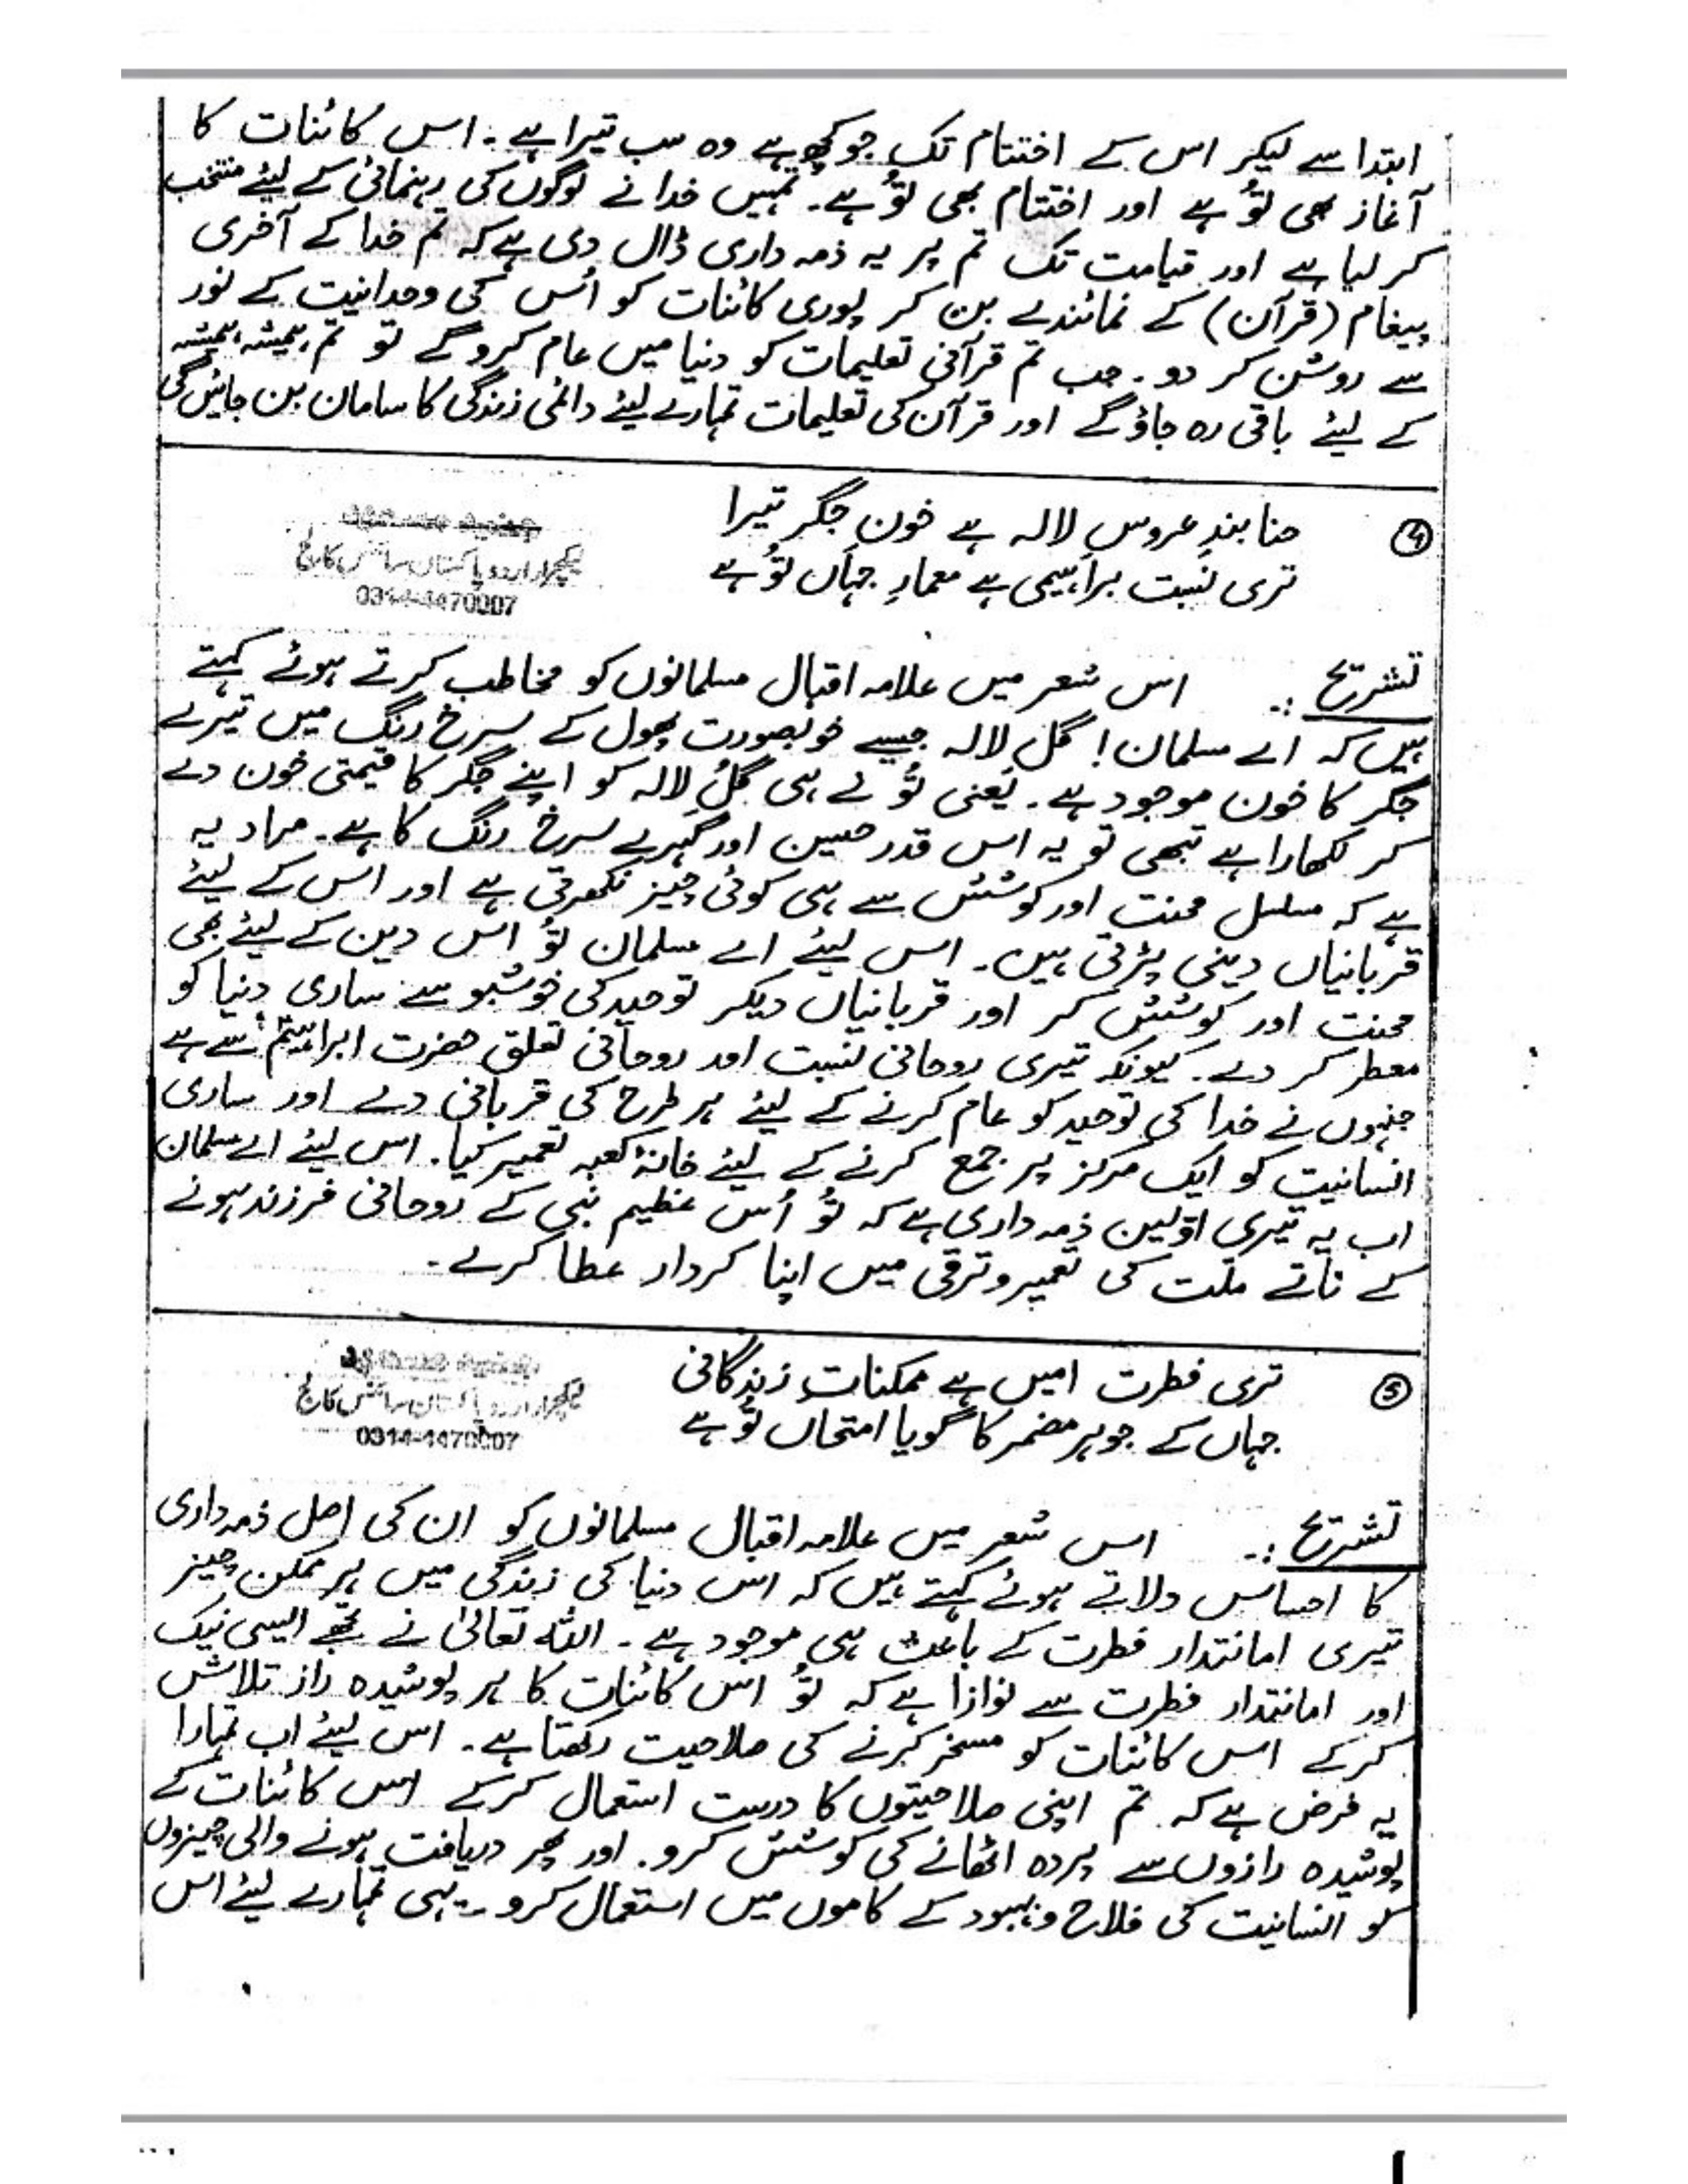 ابتدا سے لیکر اس کے اختتام تک جو کچھ ہے وہ سب تیرا ہے۔ اس کائنات کا
آغاز بھی تُو ہے اور اختتام بھی تُو ہے۔ تمہیں خدا نے لوگوں کی رہنمائی کے لیئے منتخب
کر لیا ہے اور قیامت تک تم پر یہ ذمہ داری ڈال دی ہے کہ تم خدا کے آخری
پیغام (قرآن) کے نمائندے بن کر پوری کائنات کو اُس کی وحدانیت کے نور
سے روشن کر دو۔ جب تم قرآنی تعلیمات کو دنیا میں عام کرو گے تو تم ہمیشہ ہمیشہ
کے لیئے باقی رہ جاؤ گے اور قرآن کی تعلیمات تمہارے لیئے دائمی زندگی کا سامان بن جائیں گی
④ حنا بندِ عروسِ لالہ ہے خونِ جگر تیرا
تری نسبت براہیمی ہے معمارِ جہاں تُو ہے
لیکچرار اردو پاکستان سائنس کالج
0314-4470007
تشریح :۔ اس شعر میں علامہ اقبال مسلمانوں کو مخاطب کرتے ہوئے کہتے
ہیں کہ اے مسلمان! گُلِ لالہ جیسے خوبصورت پھول کے سرخ رنگ میں تیرے
جگر کا خون موجود ہے۔ یعنی تُو نے ہی گُلِ لالہ کو اپنے جگر کا قیمتی خون دے
کر نکھارا ہے تبھی تو یہ اس قدر حسین اور گہرے سرخ رنگ کا ہے۔ مراد یہ
ہے کہ مسلسل محنت اور کوشش سے ہی کوئی چیز نکھرتی ہے اور اس کے لیئے
قربانیاں دینی پڑتی ہیں۔ اس لیئے اے مسلمان تُو اس دین کے لیئے بھی
محنت اور کوشش کر اور قربانیاں دیکر توحید کی خوشبو سے ساری دنیا کو
معطر کر دے۔ کیونکہ تیری روحانی نسبت اور روحانی تعلق حضرت ابراہیمؑ سے ہے
جنہوں نے خدا کی توحید کو عام کرنے کے لیئے ہر طرح کی قربانی دے اور ساری
انسانیت کو ایک مرکز پر جمع کرنے کے لیئے خانۂ کعبہ تعمیر کیا۔ اس لیئے اے مسلمان
اب یہ تیری اوّلین ذمہ داری ہے کہ تُو اُس عظیم نبی کے روحانی فرزند ہونے
کے ناتے ملّت کی تعمیر و ترقی میں اپنا کردار عطا کرے۔
⑤ تری فطرت امیں ہے ممکناتِ زندگانی
جہاں کے جوہرِ مضمر کا گویا امتحاں تُو ہے
لیکچرار اردو پاکستان سائنس کالج
0314-4470007
تشریح :۔ اس شعر میں علامہ اقبال مسلمانوں کو ان کی اصل ذمہ داری
کا احساس دلاتے ہوئے کہتے ہیں کہ اس دنیا کی زندگی میں ہر ممکن چیز
تیری امانتدار فطرت کے باعث ہی موجود ہے۔ اللہ تعالیٰ نے تجھے ایسی نیک
اور امانتدار فطرت سے نوازا ہے کہ تُو اس کائنات کا ہر پوشیدہ راز تلاش
کر کے اس کائنات کو مسخر کرنے کی صلاحیت رکھتا ہے۔ اس لیئے اب تمہارا
یہ فرض ہے کہ تم اپنی صلاحیتوں کا درست استعمال کر کے اس کائنات کے
پوشیدہ رازوں سے پردہ اٹھانے کی کوشش کرو۔ اور پھر دریافت ہونے والی چیزوں
کو انسانیت کی فلاح و بہبود کے کاموں میں استعمال کرو۔ یہی تمہارے لیئے اس